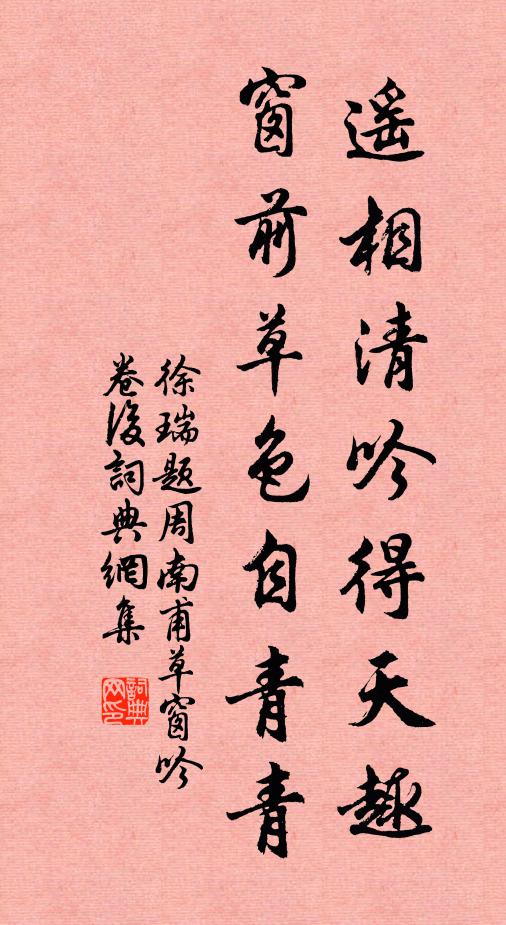 遥相清吟得天趣
窗前草色自青青
徐瑞题周南甫草窗吟
卷後詞典網集
詞典网印